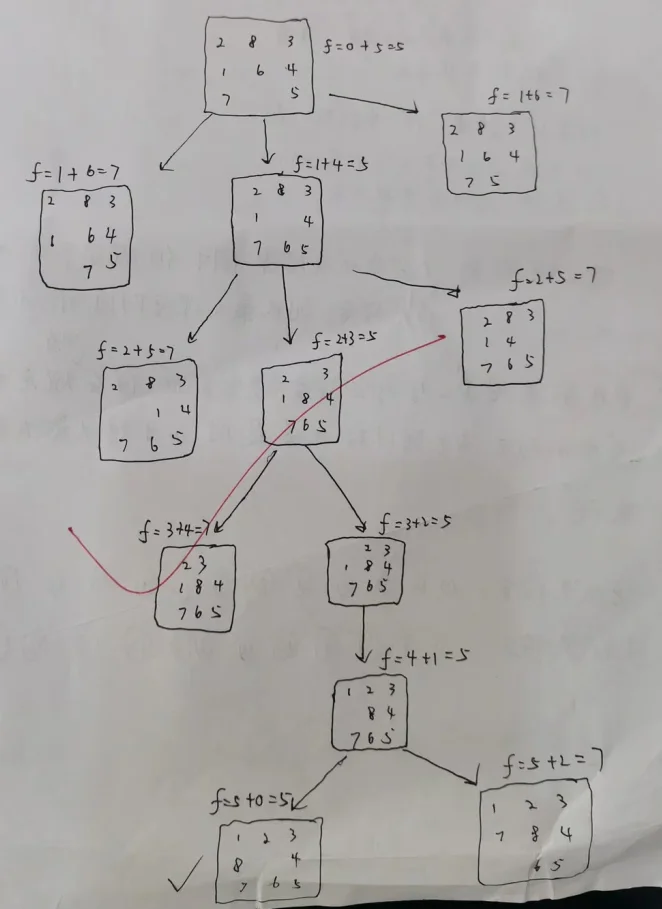 2 8 3
f=0+5=5
1 6 4
7 5
f=1+6=7
2 8 3
1 6 4
7 5
f=1+6=7
2 8 3
1 6 4
7 5
f=1+4=5
2 8 3
1 4
7 6 5
f=2+5=7
2 8 3
1 4
7 6 5
f=2+5=7
2 8 3
1 4
7 6 5
f=2+3=5
2 3
1 8 4
7 6 5
f=3+4=7
2 3
1 8 4
7 6 5
f=3+2=5
2 3
1 8 4
7 6 5
f=4+1=5
1 2 3
8 4
7 6 5
f=5+0=5
1 2 3
8 4
7 6 5
f=5+2=7
1 2 3
7 8 4
6 5